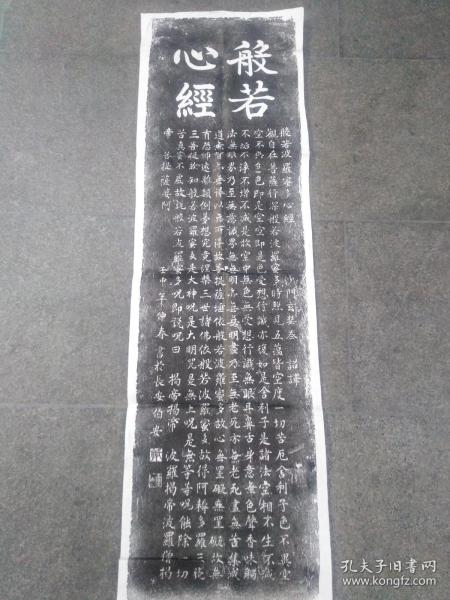 般若
心經
般若波羅蜜多心經　沙門玄奘奉　詔譯
觀自在菩薩行深般若波羅蜜多時照見五蘊皆空度一切苦厄舍利子色不異空
空不異色色即是空空即是色受想行識亦復如是舍利子是諸法空相不生不滅
不垢不淨不增不減是故空中無色無受想行識無眼耳鼻舌身意無色聲香味觸
法無眼界乃至無意識界無無明亦無無明盡乃至無老死亦無老死盡無苦集滅
道無智亦無得以無所得故菩提薩埵依般若波羅蜜多故心無罣礙無罣礙故無
有恐怖遠離顛倒夢想究竟涅槃三世諸佛依般若波羅蜜多故得阿耨多羅三藐
三菩提故知般若波羅蜜多是大神咒是大明咒是無上咒是無等等咒能除一切
苦真實不虛故說般若波羅蜜多咒即說咒曰　揭帝揭帝　波羅揭帝波羅僧揭
帝　菩提薩婆訶
壬申年仲春　書於長安伯安
孔夫子旧书网